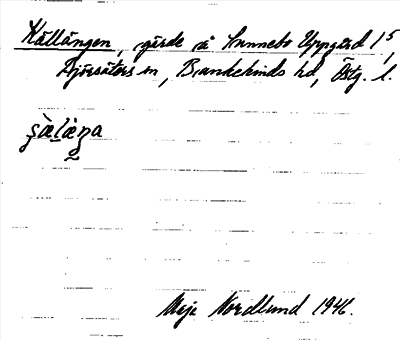 Källängen, gärde å Sunnebo Uppgård 1⁵,
Djörsäters sn, Bankekinds hd, Östg. l.
Meje Nordlund 1946.